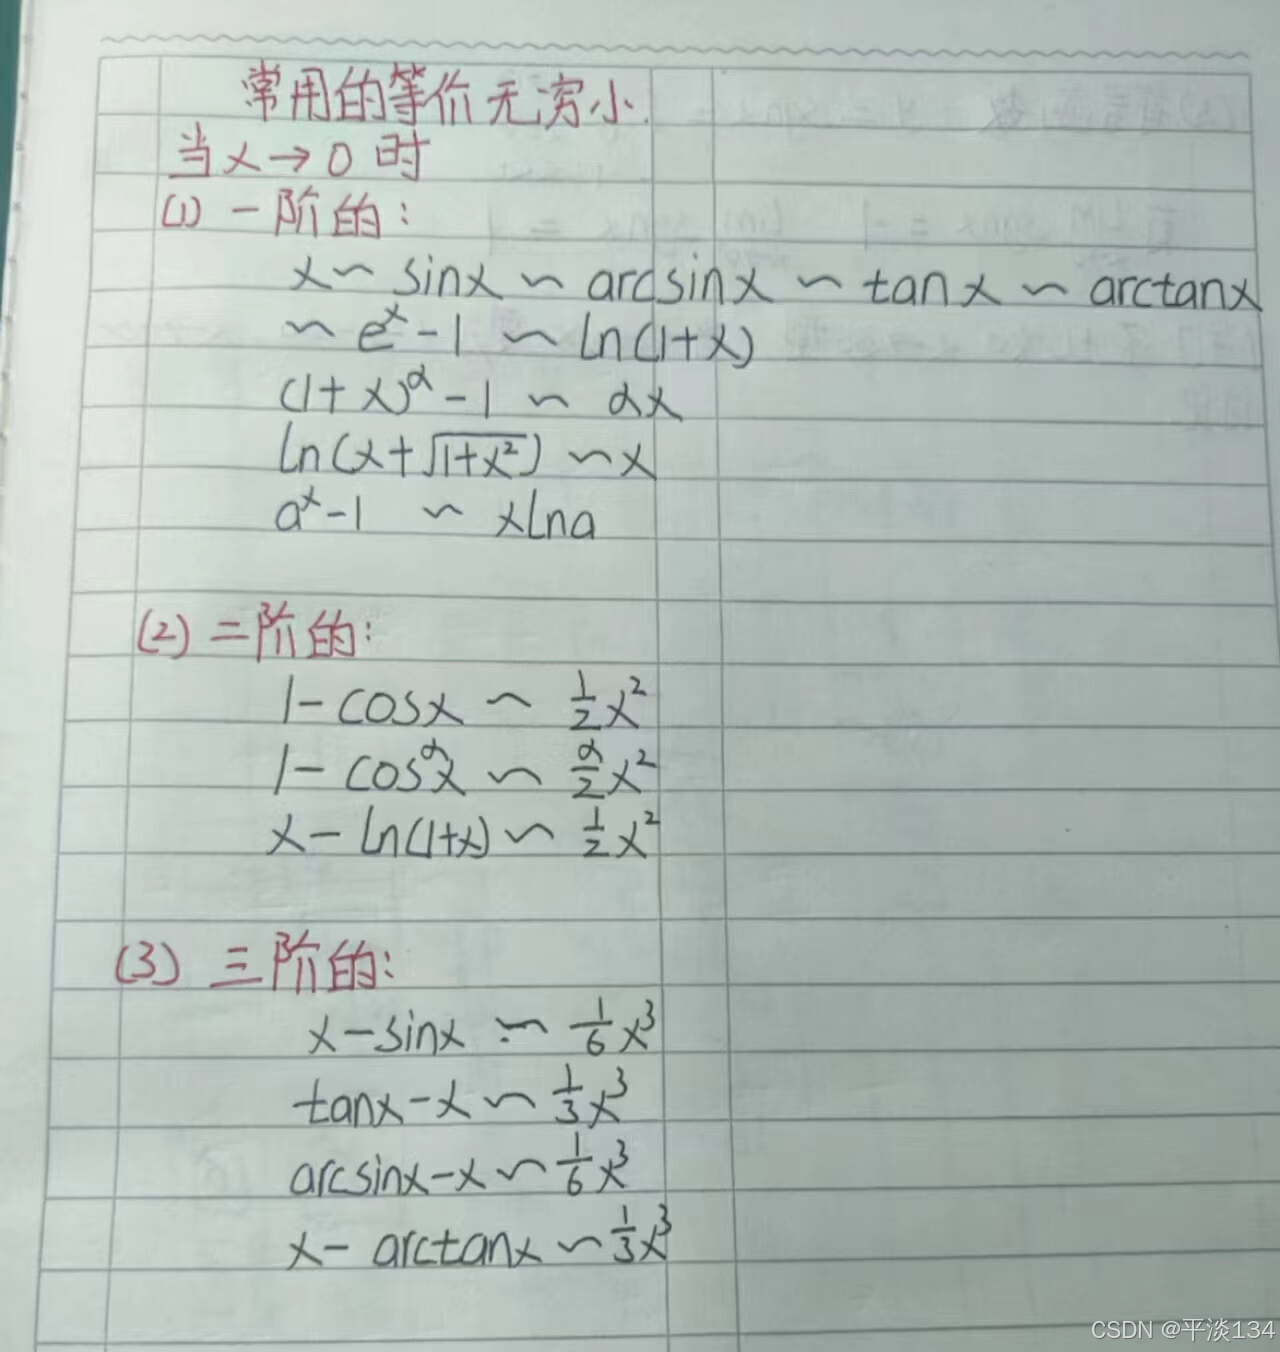 常用的等价无穷小.
当x→0时
(1) 一阶的:
x ~ sinx ~ arcsinx ~ tanx ~ arctanx
~ eˣ-1 ~ ln(1+x)
(1+x)^α - 1 ~ αx
ln(x+√(1+x²)) ~ x
aˣ-1 ~ xlna
(2) 二阶的:
1-cosx ~ ½x²
1-cos^αx ~ α/2 x²
x-ln(1+x) ~ ½x²
(3) 三阶的:
x-sinx ~ 1/6 x³
tanx-x ~ 1/3 x³
arcsinx-x ~ 1/6 x³
x-arctanx ~ 1/3 x³
CSDN @平淡134